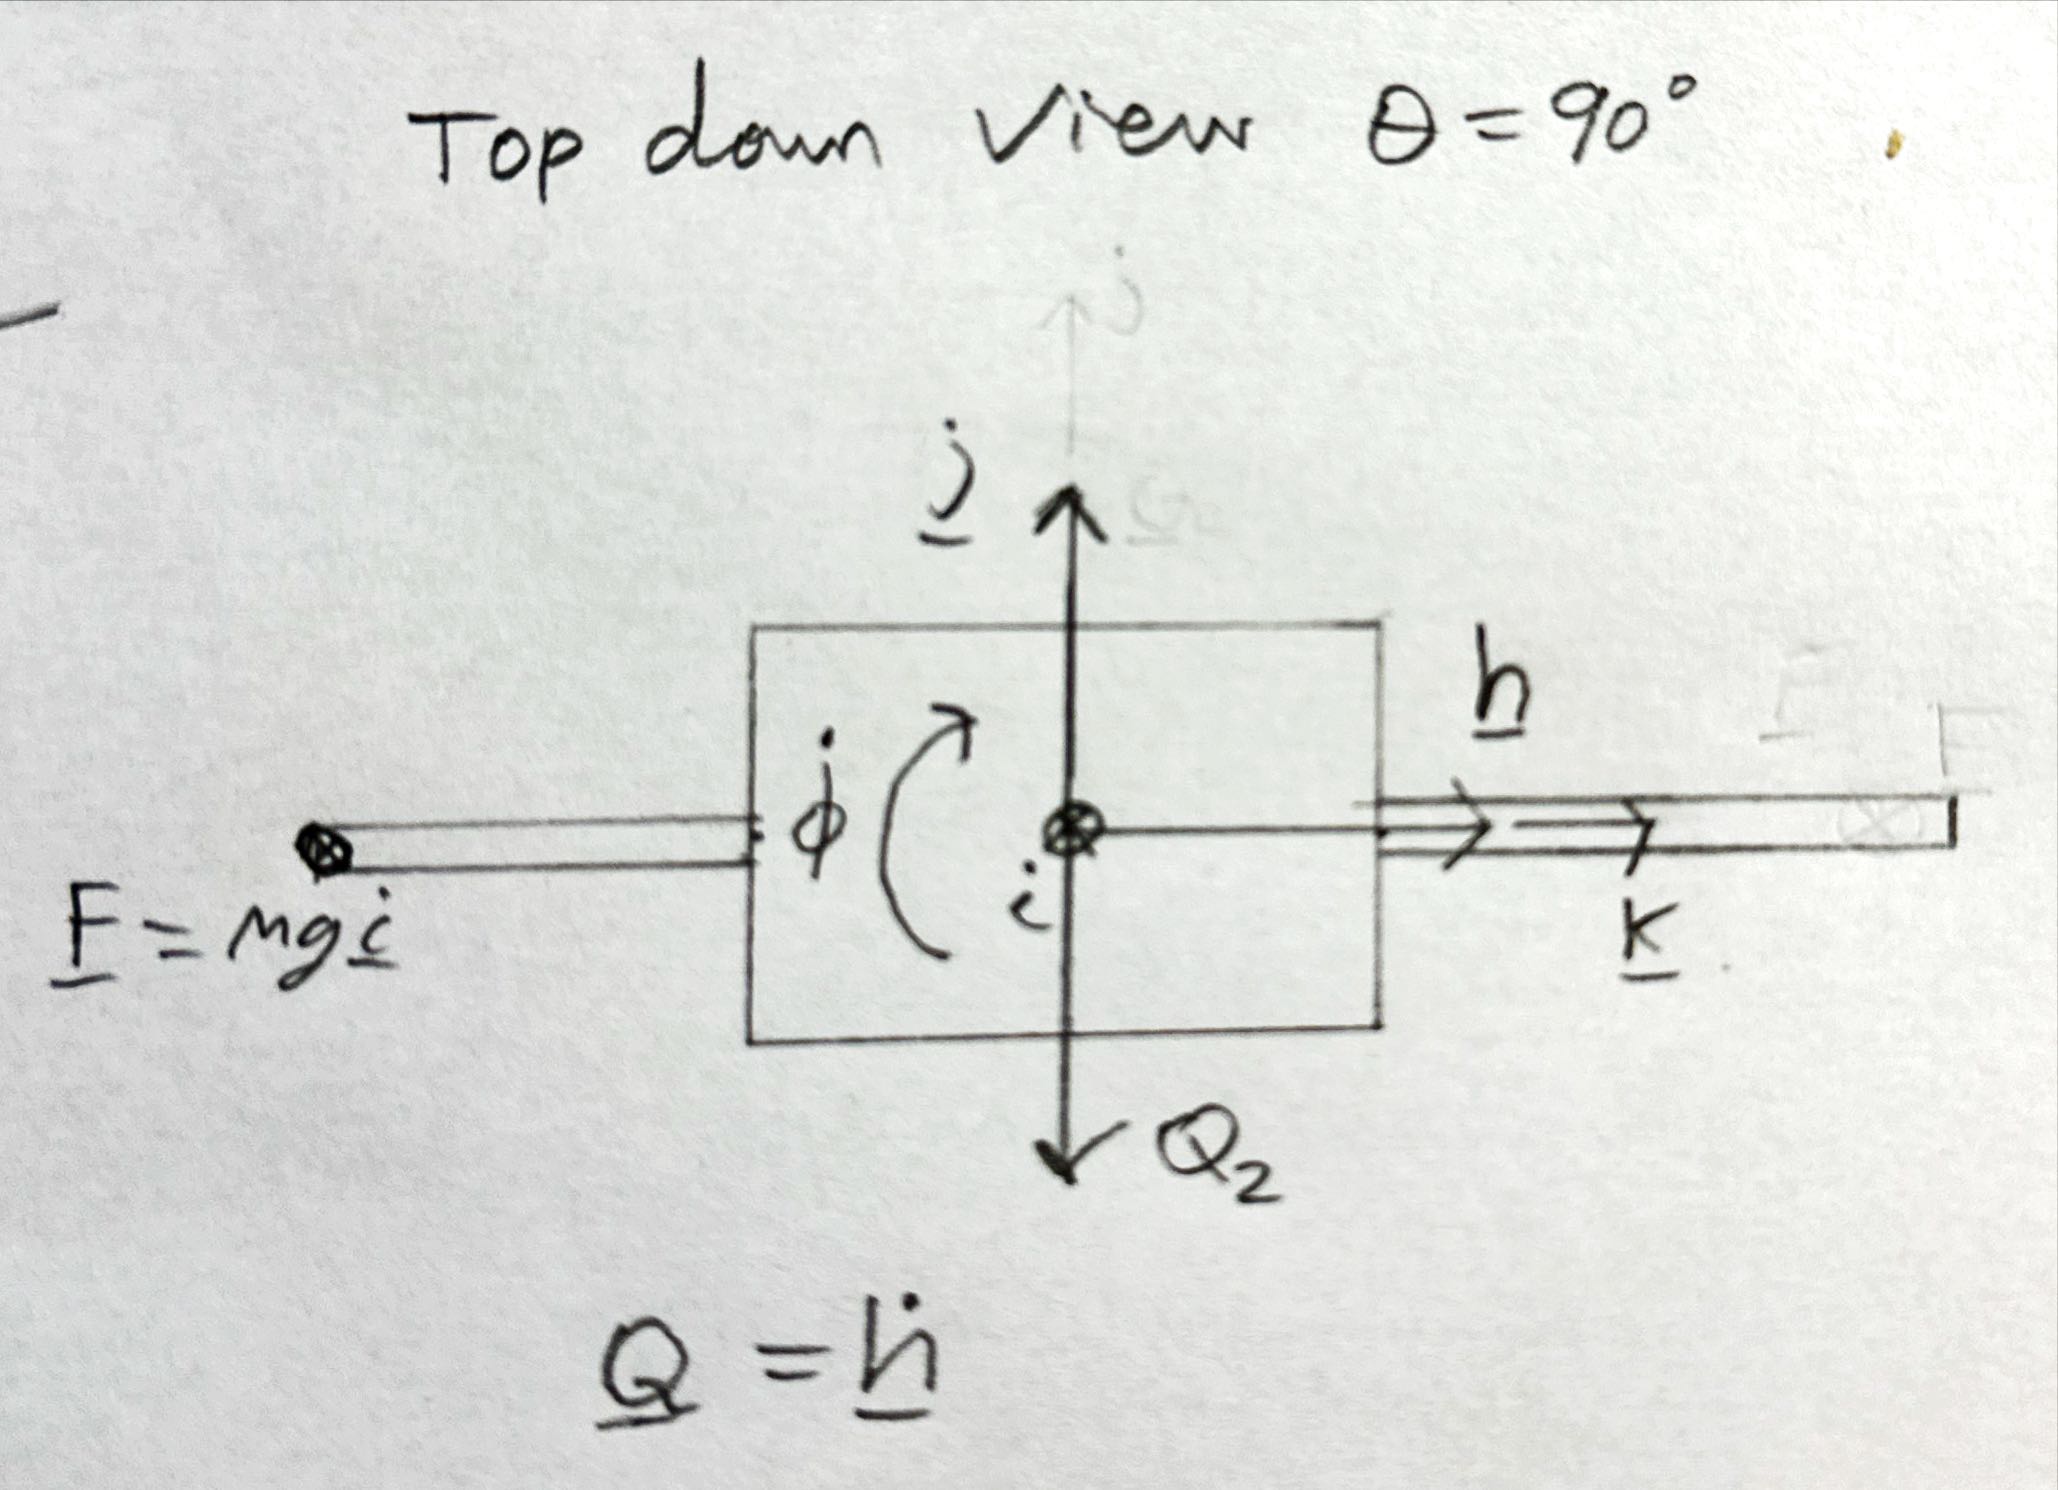 Top down view θ = 90°
j
h
ϕ̇
i
k
F = mg i
Q₂
Q = ḣ